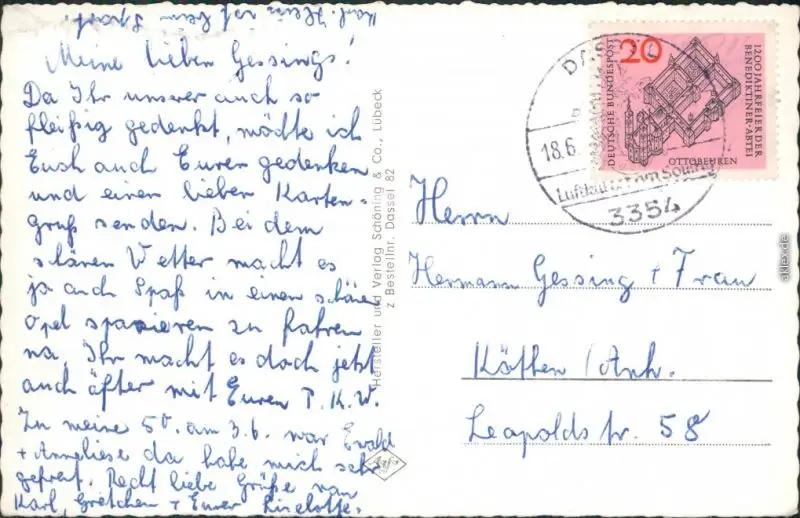 Karl-Heinz ist beim Sport.
Meine lieben Gessings!
Da Ihr unserer auch so
fleißig gedenkt, möchte ich
Euch auch Euren gedenken
und einen lieben Karten-
gruß senden. Bei dem
schönen Wetter macht es
ja auch Spaß in einen schönen
Opel spazieren zu fahren
na, Ihr macht es doch jetzt
auch öfter mit Euren P.K.W.
Zu meine 50. am 3.6. war Ewald
+ Anneliese da habe mich sehr
gefreut. Recht liebe Grüße von
Karl, Gretchen + Eurer Liselotte.
Hersteller und Verlag Schöning & Co., Lübeck
z Bestellnr. Dassel 82
Agfa
20
DEUTSCHE BUNDESPOST
1200 JAHRFEIER DER
BENEDIKTINER-ABTEI
OTTOBEUREN
18.6.
Luftkurort am Solling
3354
Herrn
Hermann Gessing + Frau
Köthen / Anh.
Leopoldstr. 58
aklex.de